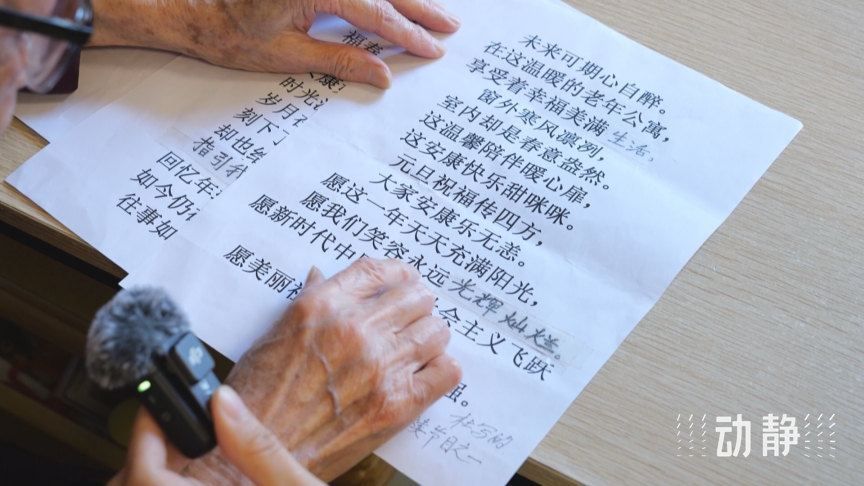 未来可期心自醉。
在这温暖的老年公寓，
享受着幸福美满生活，
窗外寒风凛冽，
室内却是春意盎然。
这温馨陪伴暖心扉，
这安康快乐甜咪咪。
元旦祝福传四方，
大家安康东无恙。
愿这一年天天充满阳光，
愿我们笑容永远光辉灿烂。
愿新时代中
会主义飞跃
愿美丽
强。
写的
节目之一
福春
康
时光
岁月
刻下
却也
指引我
回忆年
如今仍
往事如
动静